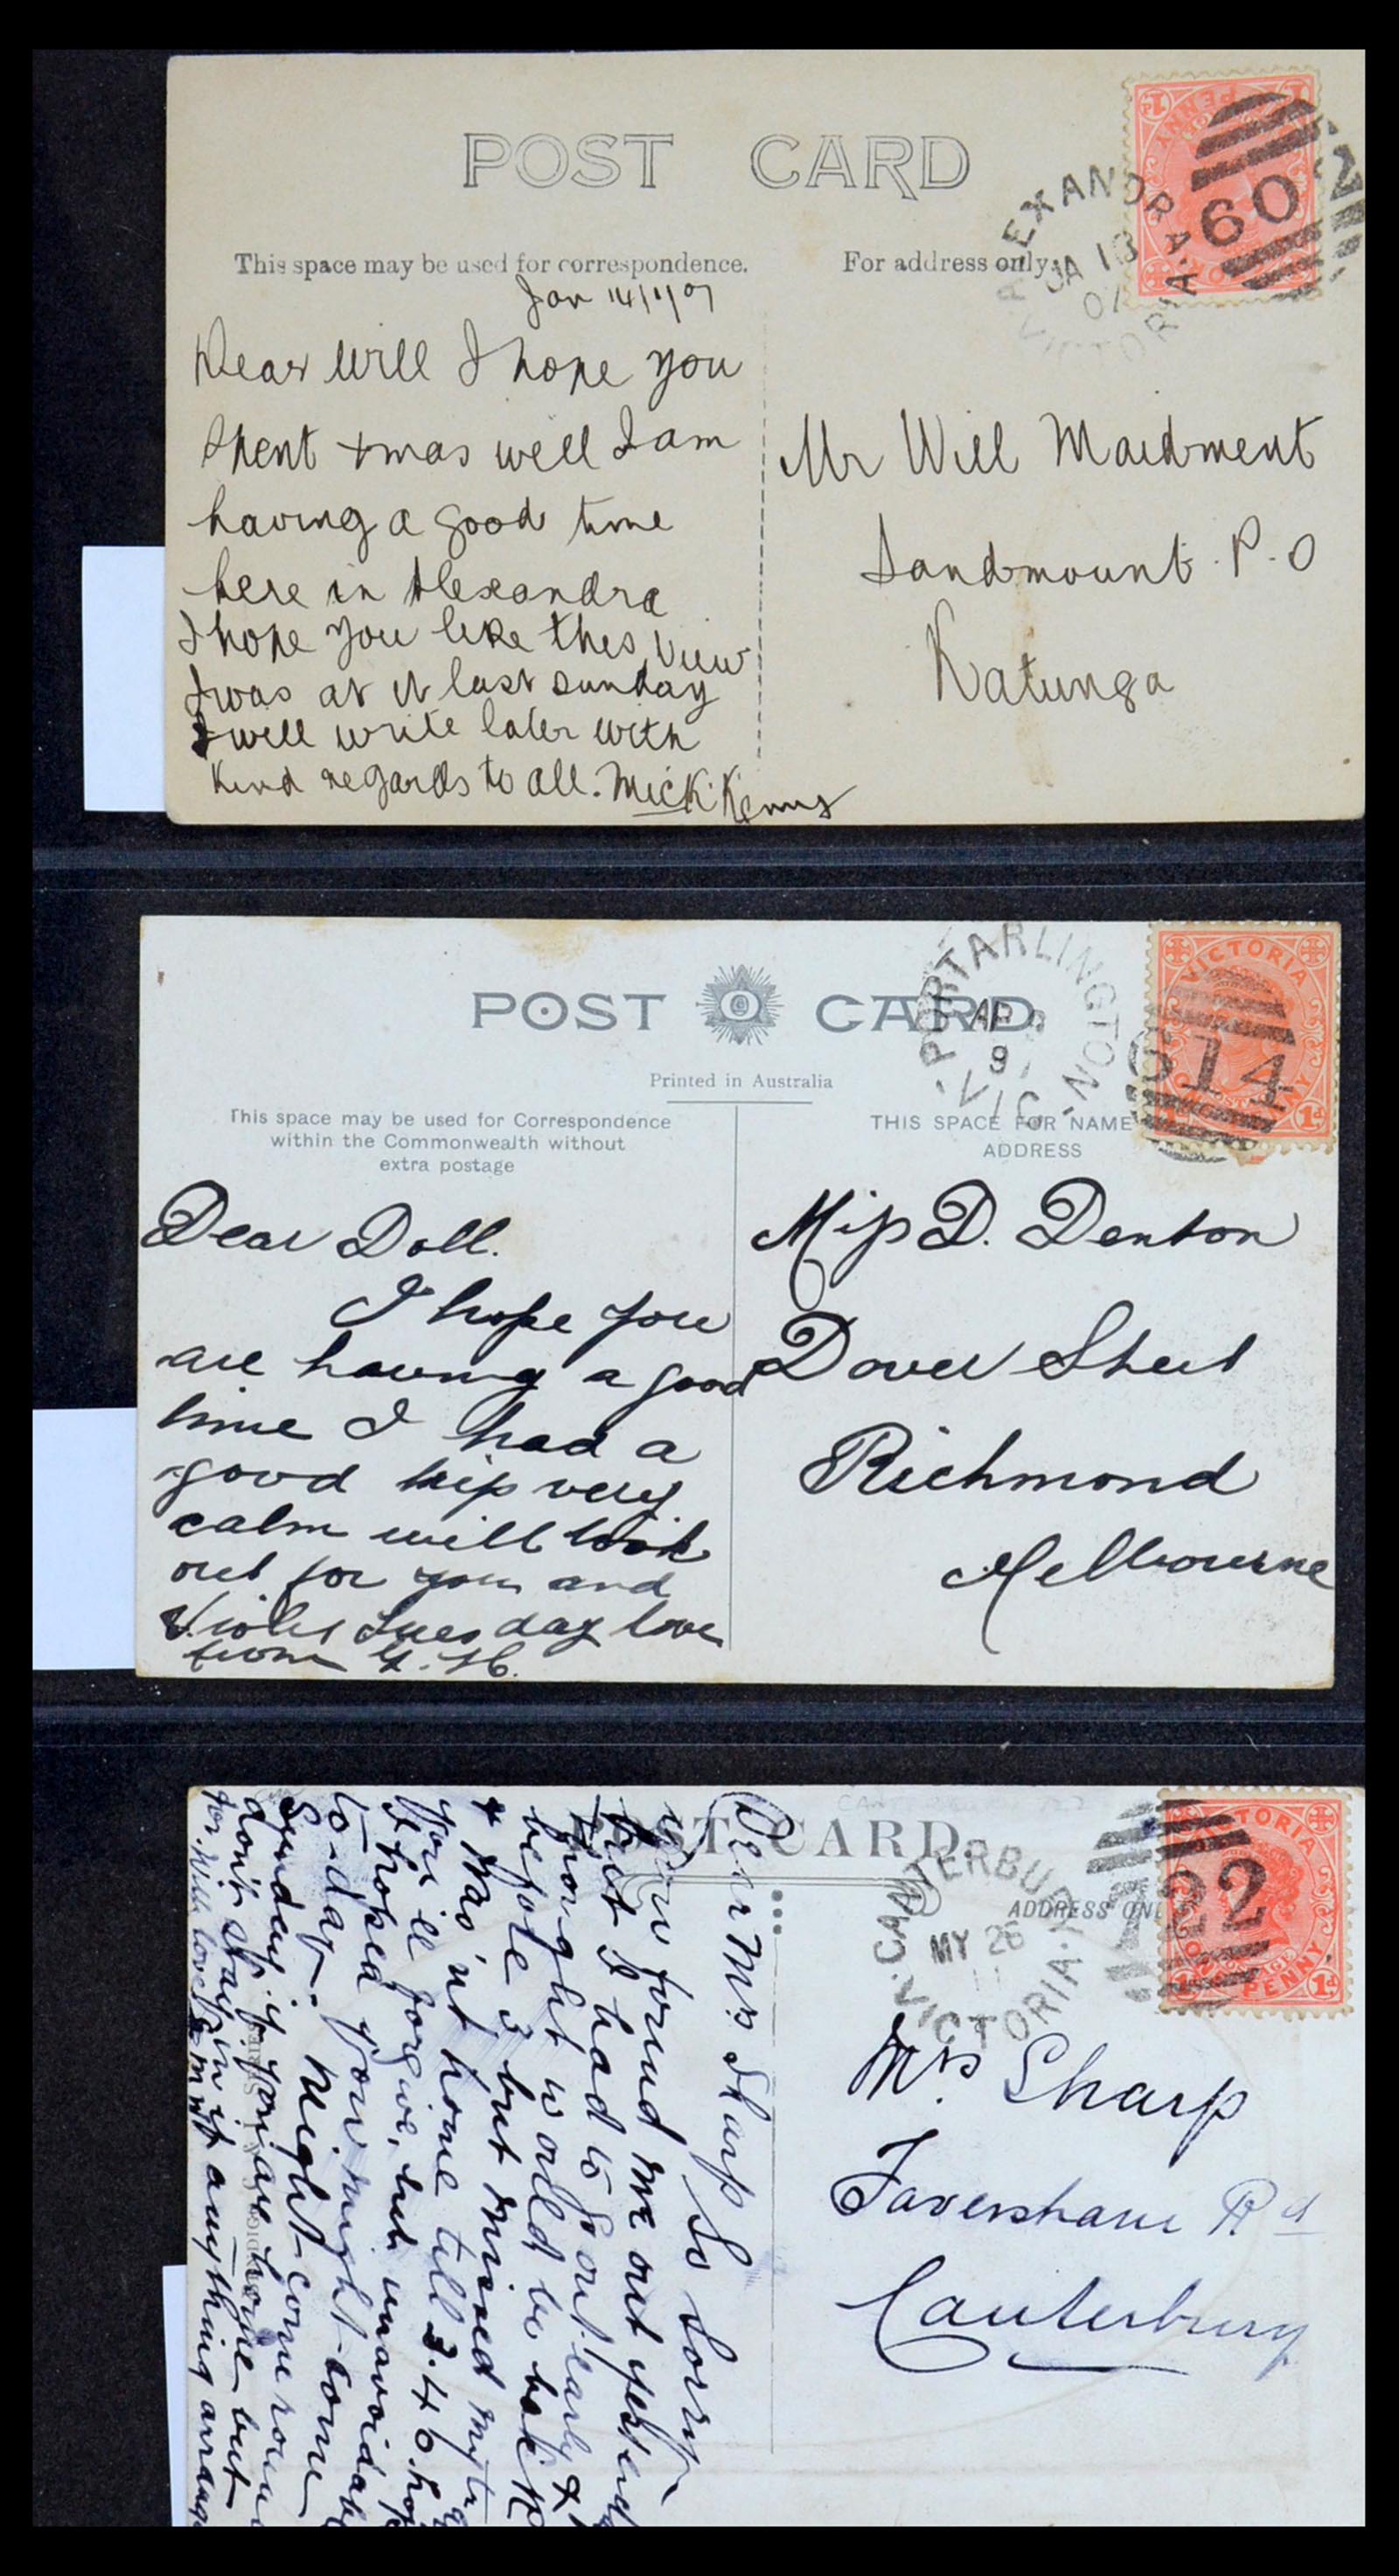 POST CARD
This space may be used for correspondence.
For address only.
ALEXANDRA
JA 13
07
VICTORIA
60
Jan 14/1/07
Dear Will I hope you
spent xmas well I am
having a good time
here in Alexandra
I hope you like this view
I was at it last sunday
I will write later with
kind regards to all. Mick
Mr Will Maidment
Sandmount P.O
Katunga
POST CARD
Printed in Australia
This space may be used for Correspondence
within the Commonwealth without
extra postage
THIS SPACE FOR NAME
ADDRESS
PORTARLINGTON
AP
9
VIC
VICTORIA
1d
14
Dear Doll.
I hope you
are having a good
time I had a
good trip very
calm will look
out for you and
Violet Tuesday love
from
Miss D. Denton
Dover Street
Richmond
Melbourne
ST CARD.
ADDRESS ONL
CANTERBURY
MY 26
11
VICTORIA
722
PENNY
1d
Dear Mrs Sharp So sorry
you found me out yesterd
but I had to go out early &
thought would be back
before 3 but missed my tr
& was'nt home till 3.46. hop
you'll forgive, but unavoidab
I hoped you might come
to-day. Might come roun
Sunday if you are home but
don't stay in if anything arrange
for. With love
Mrs Sharp
Faversham Rd
Canterbury